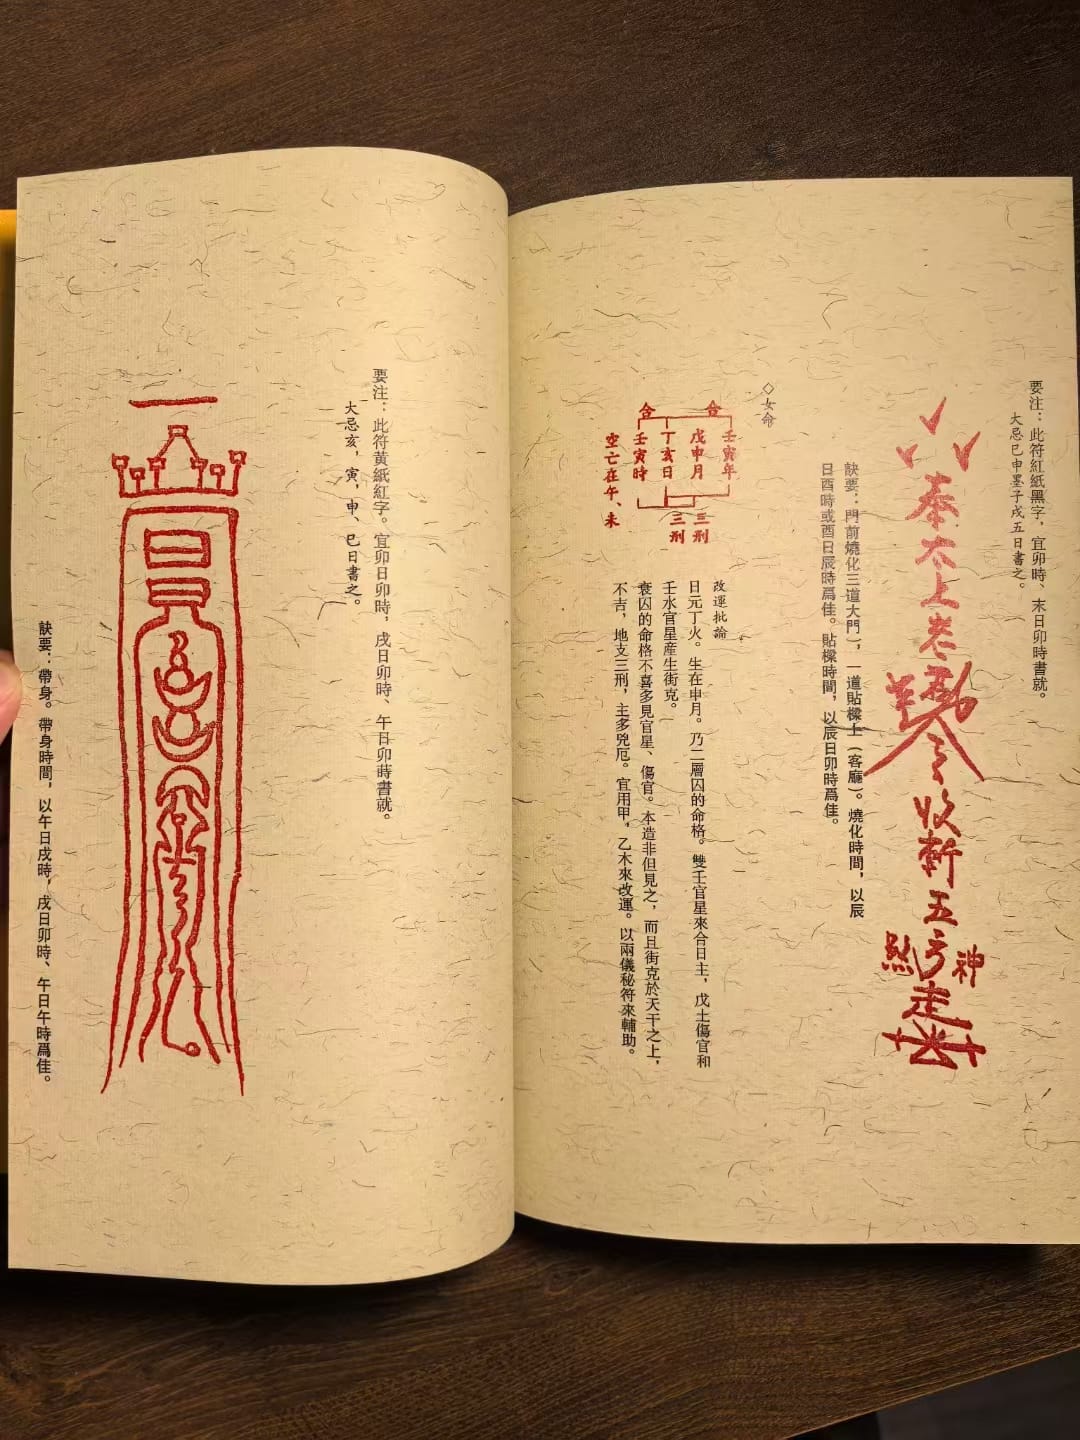 要注：此符紅紙黑字，宜卯時、末日卯時書就。
大忌巳申墨子戌五日書之。
奉太上老
令收斬五方
煞神
走
訣要：門前燒化三道大門，一道貼樑上（客廳）。燒化時間，以辰
日酉時或酉日辰時爲佳。貼樑時間，以辰日卯時爲佳。
◇女命
壬寅年
合
戊申月
丁亥日
合
壬寅時
空亡在午、未
三刑
三刑
改運批論
日元丁火。生在申月。乃二層囚的命格。雙壬官星來合日主，戊土傷官和
壬水官星產生街克。
衰囚的命格不喜多見官星、傷官。本造非但見之，而且街克於天干之上，
不吉，地支三刑，主多兇厄。宜用甲，乙木來改運。以兩儀秘符來輔助。
要注：此符黄紙紅字。宜卯日卯時，戌日卯時、午日卯蒔書就。
大忌亥，寅，申、巳日書之。
訣要：帶身。帶身時間，以午日戌時，戌日卯時、午日午時爲佳。